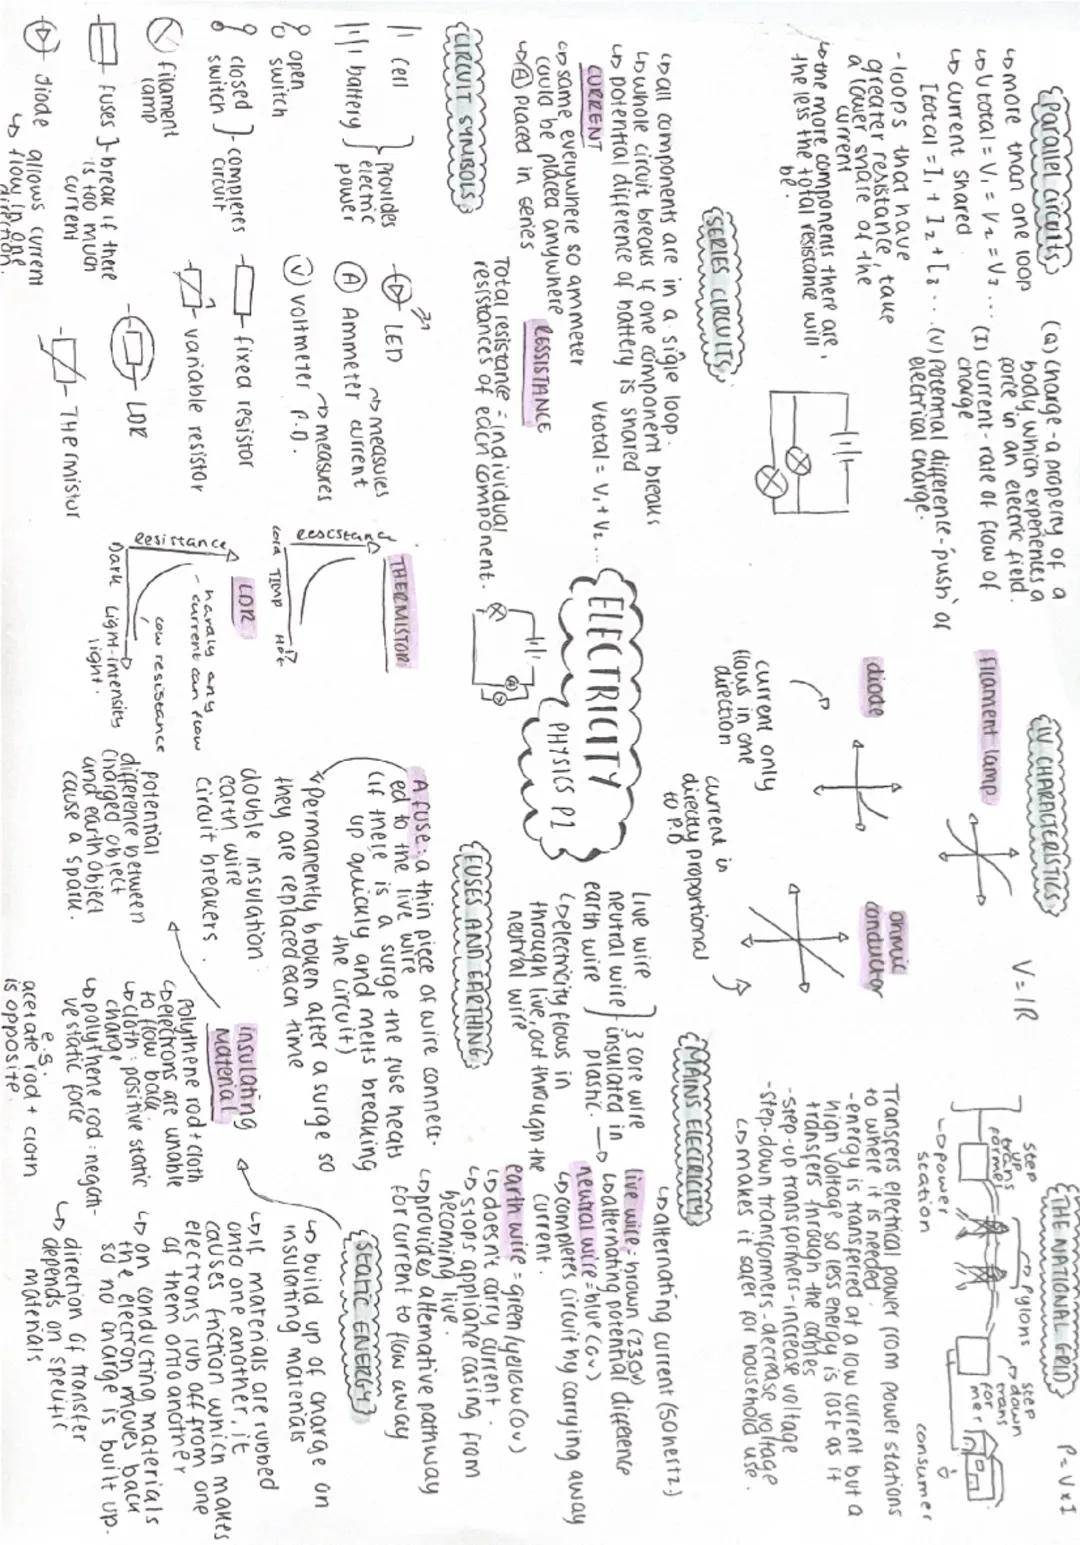 {Parallel circuits}
↳more than one loop
↳Vtotal = V₁ = V₂ = V₃ ...
↳current shared
Itotal = I₁ + I₂ + I₃ ...
- loops that have
greater resistance, take
a lower share of the
current
↳the more components there are,
the less the total resistance will
be.
(Q) Charge - a property of a
body which experiences a
force in an electric field.
(I) Current - rate of flow of
charge
(V) Potential difference - 'push' of
electrical charge.
{IV CHARACTERISTICS}
V = IR
filament lamp
diode
current only
flows in one
direction
ohmic
conductor
current is
directly proportional
to P.D
{THE NATIONAL GRID}
P = V x I
step
up
trans
former
Pylons
step
down
trans
for
mer
power
station
consumer
Transfers electrical power from power stations
to where it is needed.
- energy is transferred at a low current but a
high voltage so less energy is lost as it
transfers through the cables
- step-up transformers - increase voltage
- step-down transformers - decrease voltage
↳makes it safer for household use.
{SERIES CIRCUITS}
↳all components are in a sigle loop.
↳whole circuit breaks if one component breaks
↳potential difference of battery is shared
Vtotal = V₁ + V₂ ...
CURRENT
↳same everywhere so ammeter
could be placed anywhere
↳(A) placed in series
RESSISTANCE
Total resistance = individual
resistances of each component.
ELECTRICITY
PHYSICS P1
{MAINS ELECTRICITY}
↳alternating current (50 hertz)
live wire
neutral wire
earth wire
3 core wire
insulated in
plastic.
↳electricity flows in
through live, out through the
neutral wire
live wire = brown (230v)
↳alternating potential difference
neutral wire = blue (0v)
↳completes circuit by carrying away
current.
earth wire = green/yellow (0v)
↳doesn't carry current.
↳stops appliance casing from
becoming live.
↳provides alternative pathway
for current to flow away
{CIRCUIT SYMBOLS}
cell
battery
Provides
electric
power
open
switch
closed
switch
- completes
circuit
filament
lamp
fuses
- break if there
is too much
current
diode
allows current
↳flow in one
direction.
LED
(A) Ammeter
↳measures
current
(V) voltmeter
↳measures
P.D.
fixed resistor
variable resistor
LDR
THERMISTOR
THERMISTOR
Cold
Temp
Hot
LDR
Resistance
- hardly any
current can flow
low resistance
Dark
Light-intensity
light.
{FUSES AND EARTHING}
A fuse: a thin piece of wire connect-
ed to the live wire
(if there is a surge the fuse heats
up quickly and melts breaking
the circuit)
permanently broken after a surge so
they are replaced each time
double insulation
earth wire
circuit breakers.
{STATIC ENERGY}
↳build up of charge on
insulating materials
↳If materials are rubbed
onto one another, it
causes friction which makes
electrons rub off from one
of them onto another
↳on conducting materials
the electron moves back
so no charge is built up.
↳direction of transfer
depends on speific
materials
insulating
Material
Polythene rod + cloth
↳electrons are unable
to flow back.
↳cloth: positive static
charge
↳polythene rod - negati-
ve static force
e.g.
acetate rod + cloth
is opposite.
potennial
difference between
charged object
and earth object
cause a spark.